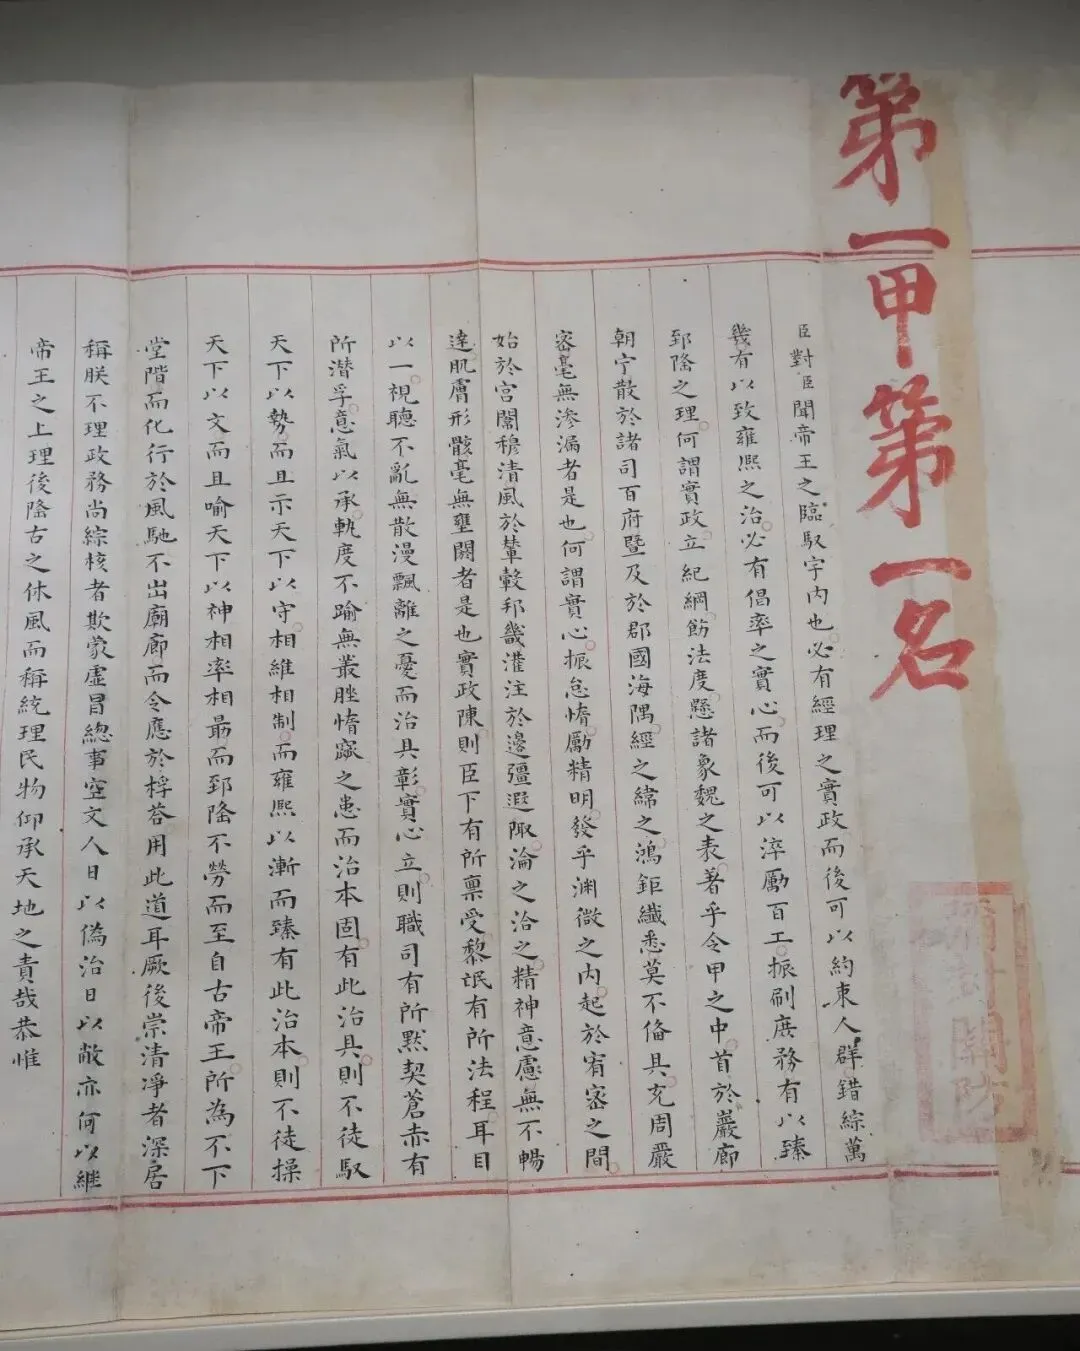 第一甲第一名
臣對臣聞帝王之臨馭宇內也必有經理之實政而後可以約束人群錯綜萬
幾有以致雍熙之治必有倡率之實心而後可以淬勵百工振刷庶務有以臻
郅隆之理何謂實政立紀綱飭法度懸諸象魏之表著乎令甲之中首於巖廊
朝宁散於諸司百府暨及於郡國海隅經之緯之鴻鉅纖悉莫不偹具充周嚴
密毫無滲漏者是也何謂實心振怠惰勵精明發乎淵微之內起於宥密之間
始於宮闈穆清風於輦轂邦畿灌注於邊疆遐陬淪之洽之精神意慮無不暢
達肌膚形骸毫無壅閼者是也實政陳則臣下有所禀受黎氓有所法程耳目
以一視聽不亂無散漫飄離之憂而治具彰實心立則職司有所默契蒼赤有
所潛孚意氣以承軌度不踰無叢脞惰窳之患而治本固有此治具則不徒馭
天下以勢而且示天下以守相維相制而雍熙以漸而臻有此治本則不徒操
天下以文而且喻天下以神相率相勗而郅隆不勞而至自古帝王所為不下
堂階而化行於風馳不出廟廊而令應於桴荅用此道耳厥後崇清凈者深居
稱朕不理政務尚綜核者欺蒙虛冒總事空文人日以偽治日以敝亦何以継
帝王之上理後隆古之休風而稱統理民物仰承天地之責哉恭惟
彌封關防